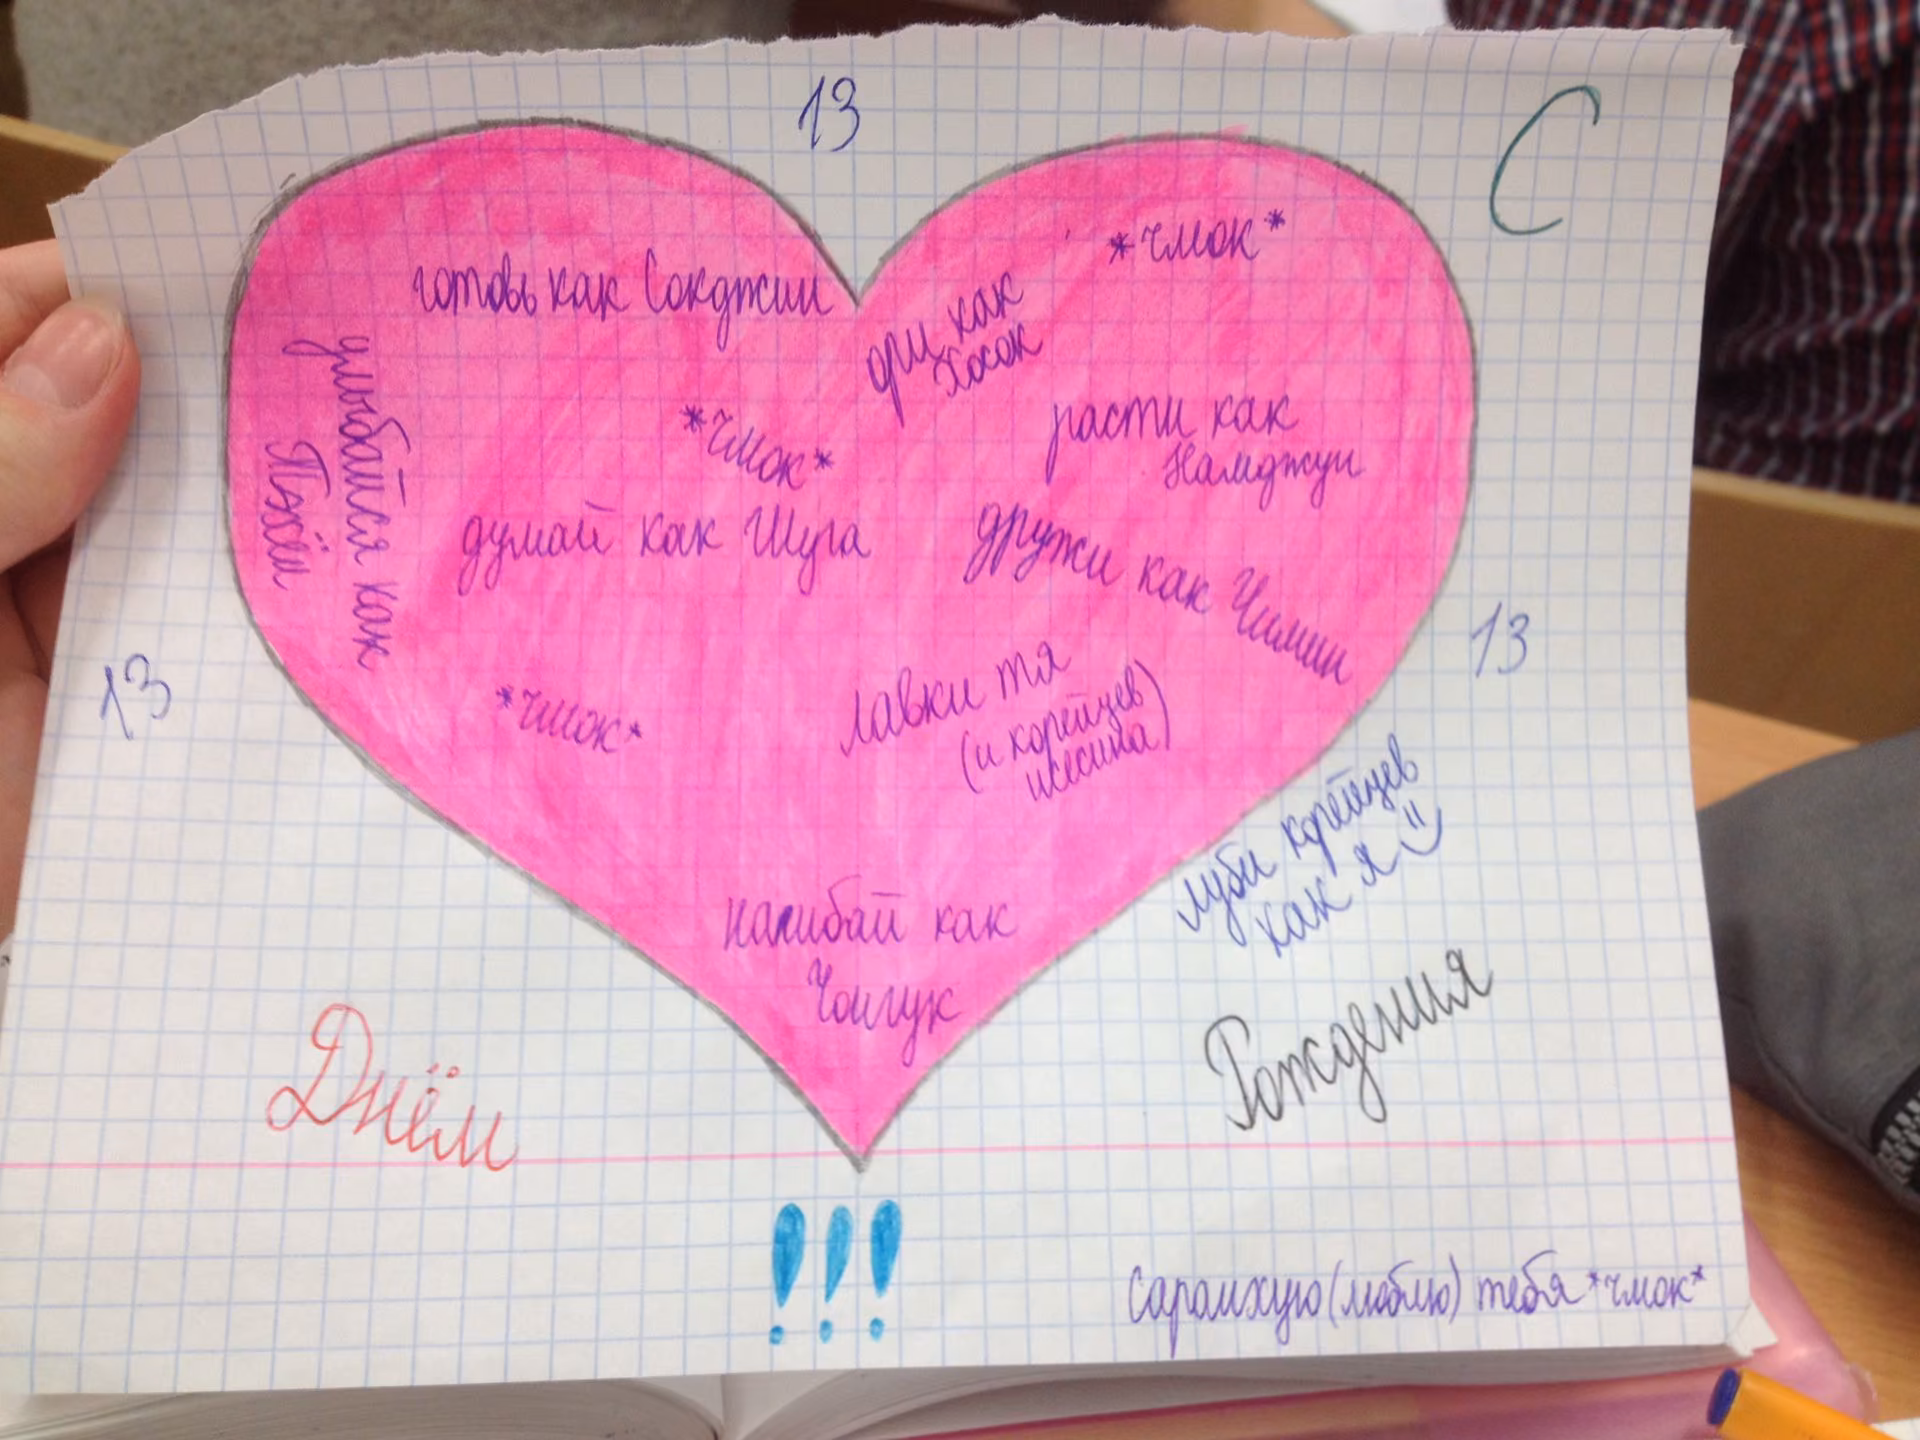 13
С
*чмок*
готовь как Сокджин
ори как
Хосок
улыбайся как
Тэхён
*чмок*
расти как
Намджун
думай как Шуга
дружи как Чимин
13
13
*чмок*
лавки тя
(и корейцев
)
нагибай как
Чонгук
луби корейцев
как я
Днём
Рождения
!!!
Саранхую (люблю) тебя *чмок*